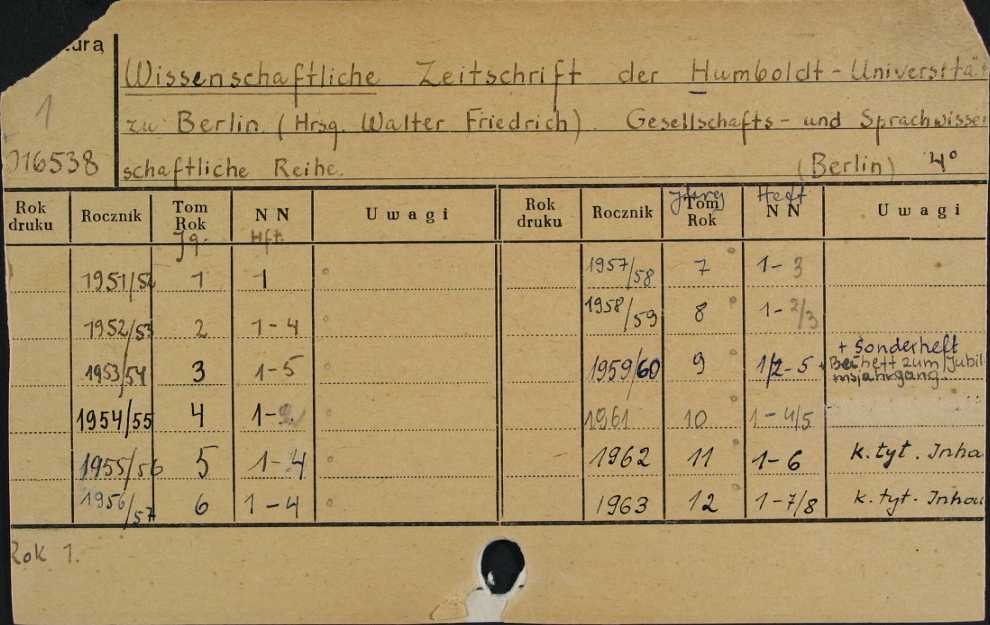 Wissenschaftliche Zeitschrift der Humboldt-Universität
1 zu Berlin (Hrsg. Walter Friedrich). Gesellschafts- und Sprachwissen
16538 schaftliche Reihe. (Berlin) 4°
Rok druku Rocznik Tom Rok NN Uwagi Rok druku Rocznik Tom Rok NN Uwagi
Jg. Hft. Jhrg Heft
1951/52 1 1 1957/58 7 1-3
1952/53 2 1-4 1958/59 8 1-2/3
1953/54 3 1-5 1959/60 9 1/2-5 + Sonderheft
Beiheft zum Jubil
umsjahrgang.
1954/55 4 1- 1961 10 1-4/5
1955/56 5 1-4 1962 11 1-6 k. tyt. Inha
1956/57 6 1-4 1963 12 1-7/8 k. tyt. Inha
Rok 1.